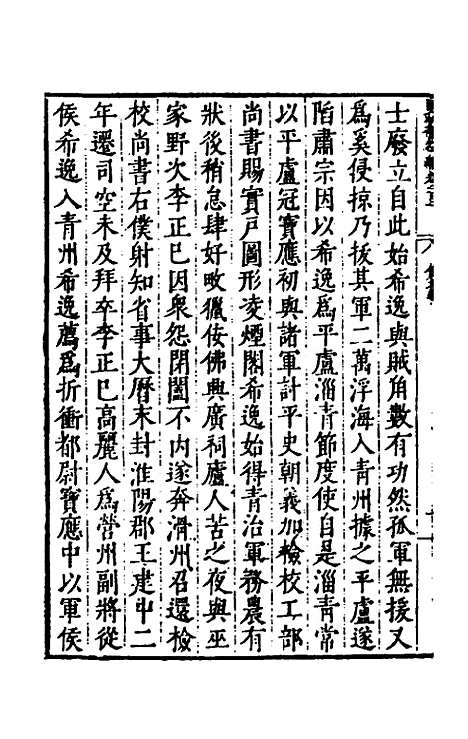 士廢立自此始希逸與賊角數有功然孤軍無援又
爲奚侵掠乃拔其軍二萬浮海入青州據之平盧遂
陷肅宗因以希逸爲平盧淄青節度使自是淄青常
以平盧冠寶應初與諸軍討平史朝義加檢校工部
尚書賜實戶圖形凌煙閣希逸始得青治軍務農有
狀後稍怠肆好畋獵佞佛興廣祠廬人苦之夜與巫
家野次李正巳因衆怨閉闔不内遂奔滑州召還檢
校尚書右僕射知省事大曆末封淮陽郡王建中二
年遷司空未及拜卒李正巳高麗人爲營州副將從
侯希逸入青州希逸薦爲折衝都尉寶應中以軍侯